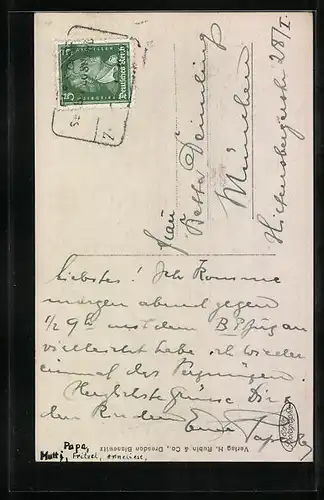 Frau
Betta Deimling
München
Hiltensbergerstr 28/I.
Liebstes! Ich komme
morgen abend gegen
1/2 9h mit dem B P Zug an
vielleicht habe ich wieder
einmal das Vergnügen.
Herzlichste Grüsse Dir &
den Kindern Euer Papa
Deutsches Reich
5
Verlag H. Rubin & Co., Dresden-Blasewitz
Papa,
Mutti, Fritzel, Anneliese,